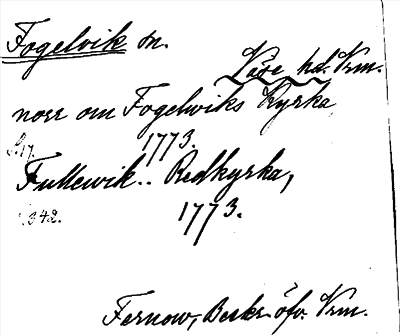 Fogelvik sn.
Väse hd. Vrm.
norr om Fogelwiks Kyrka
1773.
S. 17.
Fullewik.. Redkyrka,
1773.
S. 342.
Fernow, Beskr. öfv. Vrm.